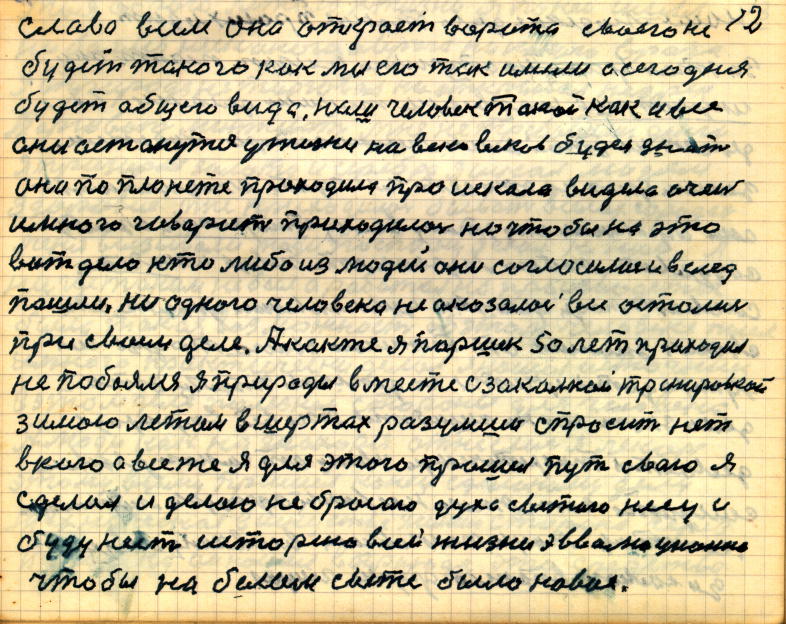 слава всем она откроет ворота своего не 12
будет такого как мы его так имели а сегодня
будет общего вида, наш человек такой как и все
они останутся у жизни на веки веков будет знат
она по планете проходила про искала видела очен
и много говарит приходилос но чтобы на это
вот дело кто либо из людей они согласилис и в след
пошли. Ни одного человека не оказалос все осталис
при своем деле. А как же я паршек 50 лет проходил
не побоялся я природы в месте с закалкой тренировкой
зимою летом в шортах разумши спросит нет
в кого а все же я для этого прошел пут свого я
сделал и делаю не бросаю духа святого несу и
буду нести история всей жизни эвволюционна
чтобы на белом свете было новое.